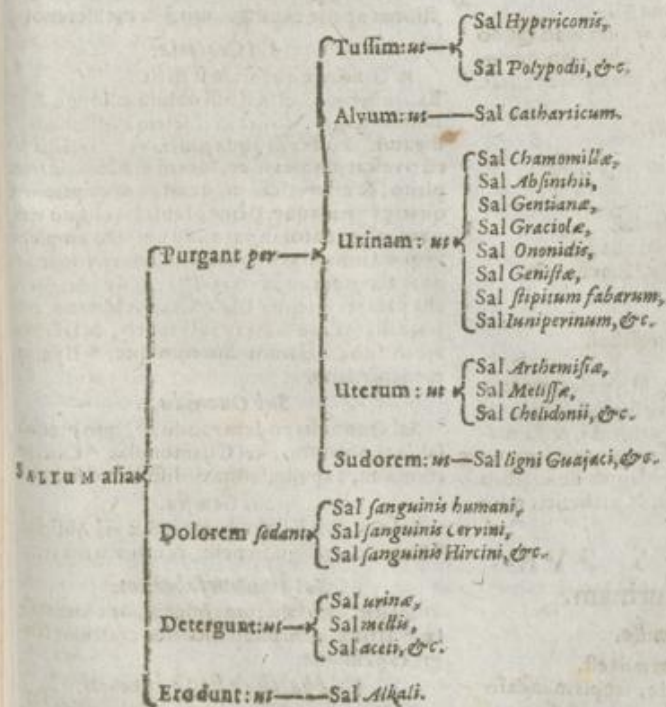 SALIUM alia
Purgant per
Tussim: ut
Sal Hypericonis,
Sal Polypodii, &c.
Alvum: ut
Sal Catharticum.
Urinam: ut
Sal Chamomillæ,
Sal Absinthii,
Sal Gentianæ,
Sal Graciolæ,
Sal Ononidis,
Sal Genistæ,
Sal stipitum fabarum,
Sal Iuniperinum, &c.
Uterum: ut
Sal Arthemisiæ,
Sal Melissæ,
Sal Chelidonii, &c.
Sudorem: ut
Sal ligni Guajaci, &c.
Dolorem sedant
Sal sanguinis humani,
Sal sanguinis Cervini,
Sal sanguinis Hircini, &c.
Detergunt: ut
Sal urinæ,
Sal mellis,
Sal aceti, &c.
Erodunt: ut
Sal Alkali.